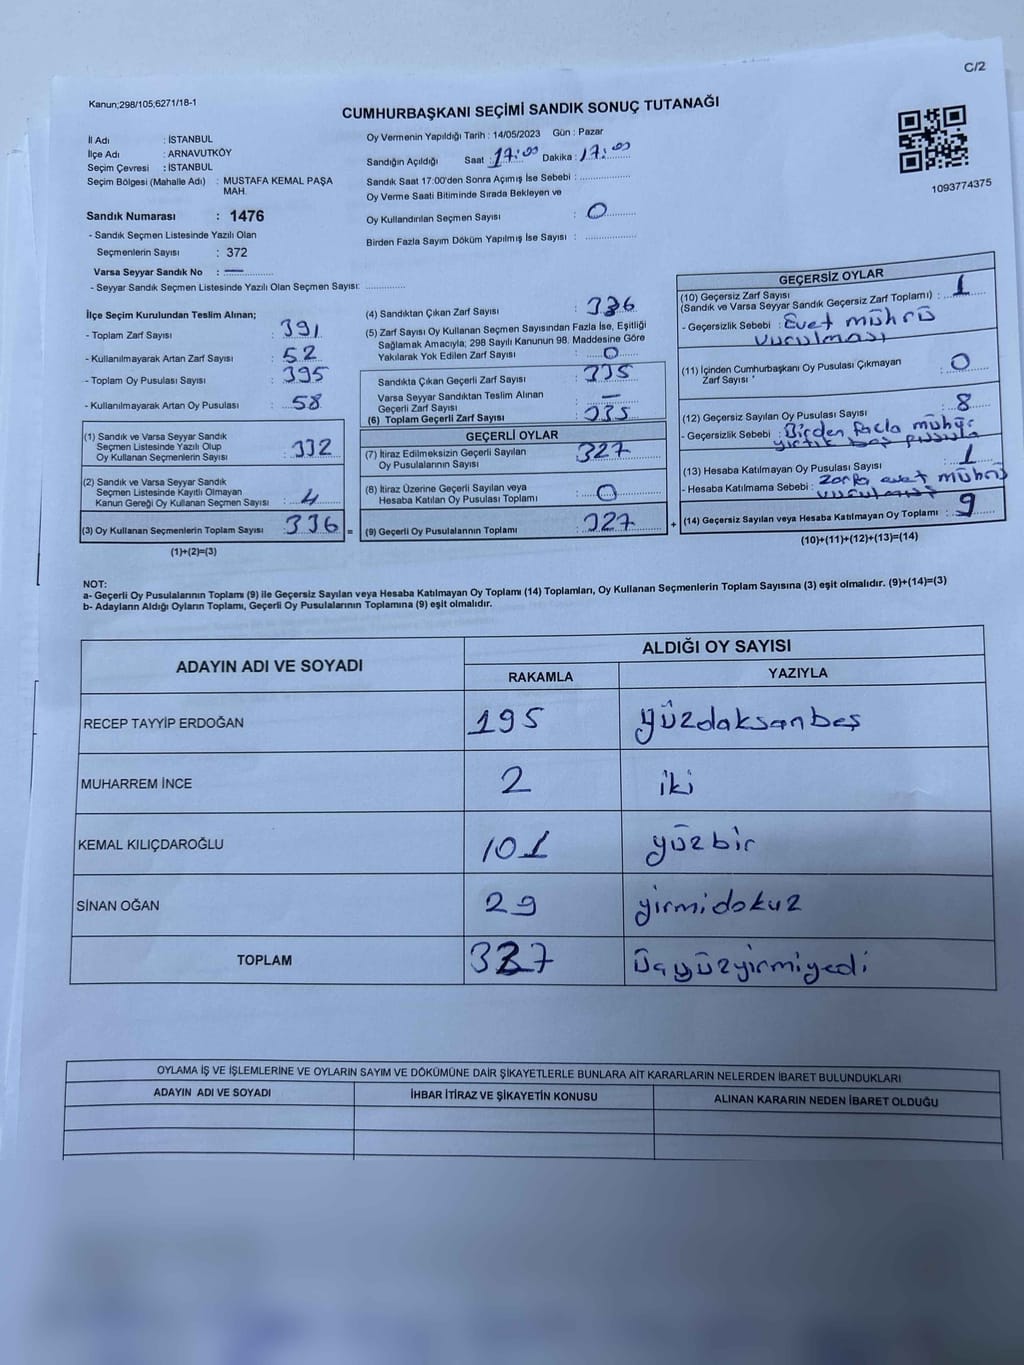 C/2
Kanun;298/105;6271/18-1
CUMHURBAŞKANI SEÇİMİ SANDIK SONUÇ TUTANAĞI
İl Adı : İSTANBUL
İlçe Adı : ARNAVUTKÖY
Seçim Çevresi : İSTANBUL
Seçim Bölgesi (Mahalle Adı) : MUSTAFA KEMAL PAŞA
MAH.
Sandık Numarası : 1476
- Sandık Seçmen Listesinde Yazılı Olan
Seçmenlerin Sayısı : 372
Varsa Seyyar Sandık No : —
- Seyyar Sandık Seçmen Listesinde Yazılı Olan Seçmen Sayısı:
Oy Vermenin Yapıldığı Tarih : 14/05/2023 Gün : Pazar
Sandığın Açıldığı Saat : 17:00 Dakika : 17:00
Sandık Saat 17:00'den Sonra Açımış İse Sebebi :
Oy Verme Saati Bitiminde Sırada Bekleyen ve
Oy Kullandırılan Seçmen Sayısı : 0
Birden Fazla Sayım Döküm Yapılmış İse Sayısı :
1093774375
İlçe Seçim Kurulundan Teslim Alınan;
- Toplam Zarf Sayısı : 391
- Kullanılmayarak Artan Zarf Sayısı : 52
- Toplam Oy Pusulası Sayısı : 395
- Kullanılmayarak Artan Oy Pusulası : 58
(1) Sandık ve Varsa Seyyar Sandık
Seçmen Listesinde Yazılı Olup
Oy Kullanan Seçmenlerin Sayısı : 332
(2) Sandık ve Varsa Seyyar Sandık
Seçmen Listesinde Kayıtlı Olmayan
Kanun Gereği Oy Kullanan Seçmen Sayısı : 4
(3) Oy Kullanan Seçmenlerin Toplam Sayısı : 336 =
(1)+(2)=(3)
(4) Sandıktan Çıkan Zarf Sayısı : 336
(5) Zarf Sayısı Oy Kullanan Seçmen Sayısından Fazla İse, Eşitliği
Sağlamak Amacıyla; 298 Sayılı Kanunun 98. Maddesine Göre
Yakılarak Yok Edilen Zarf Sayısı : 0
Sandıkta Çıkan Geçerli Zarf Sayısı : 335
Varsa Seyyar Sandıktan Teslim Alınan
Geçerli Zarf Sayısı : —
(6) Toplam Geçerli Zarf Sayısı : 335
GEÇERLİ OYLAR
(7) İtiraz Edilmeksizin Geçerli Sayılan
Oy Pusulalarının Sayısı : 327
(8) İtiraz Üzerine Geçerli Sayılan veya
Hesaba Katılan Oy Pusulası Toplamı : 0
(9) Geçerli Oy Pusulalarının Toplamı : 327 +
GEÇERSİZ OYLAR
(10) Geçersiz Zarf Sayısı
(Sandık ve Varsa Seyyar Sandık Geçersiz Zarf Toplamı) : 1
- Geçersizlik Sebebi : Evet mührü
vurulması
(11) İçinden Cumhurbaşkanı Oy Pusulası Çıkmayan
Zarf Sayısı : 0
(12) Geçersiz Sayılan Oy Pusulası Sayısı : 8
- Geçersizlik Sebebi : Birden fazla mühür
yırtık boş pusula
(13) Hesaba Katılmayan Oy Pusulası Sayısı : 1
- Hesaba Katılmama Sebebi : zarfa evet mührü
vurulması
(14) Geçersiz Sayılan veya Hesaba Katılmayan Oy Toplamı : 9
(10)+(11)+(12)+(13)=(14)
NOT:
a- Geçerli Oy Pusulalarının Toplamı (9) ile Geçersiz Sayılan veya Hesaba Katılmayan Oy Toplamı (14) Toplamları, Oy Kullanan Seçmenlerin Toplam Sayısına (3) eşit olmalıdır. (9)+(14)=(3)
b- Adayların Aldığı Oyların Toplamı, Geçerli Oy Pusulalarının Toplamına (9) eşit olmalıdır.
ADAYIN ADI VE SOYADI ALDIĞI OY SAYISI
RAKAMLA YAZIYLA
RECEP TAYYİP ERDOĞAN 195 yüzdaksanbeş
MUHARREM İNCE 2 iki
KEMAL KILIÇDAROĞLU 101 yüzbir
SİNAN OĞAN 29 yirmidokuz
TOPLAM 327 üçyüzyirmiyedi
OYLAMA İŞ VE İŞLEMLERİNE VE OYLARIN SAYIM VE DÖKÜMÜNE DAİR ŞİKAYETLERLE BUNLARA AİT KARARLARIN NELERDEN İBARET BULUNDUKLARI
ADAYIN ADI VE SOYADI İHBAR İTİRAZ VE ŞİKAYETİN KONUSU ALINAN KARARIN NEDEN İBARET OLDUĞU